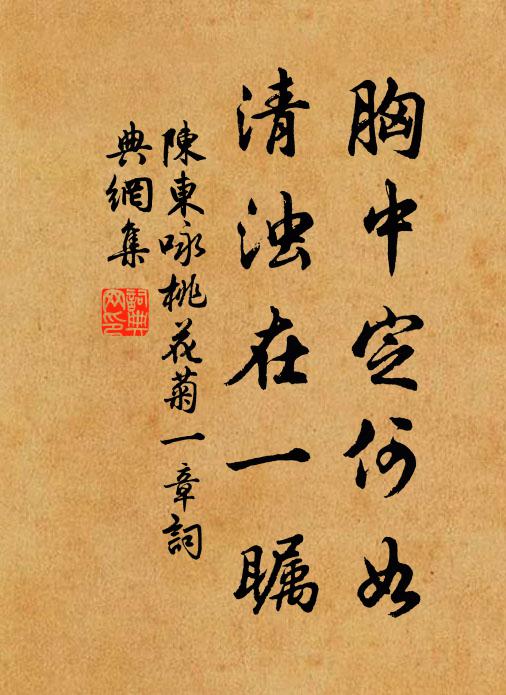 胸中定何如
清浊在一瞩
陳東咏桃花菊一章詞
典網集
詞典
网印